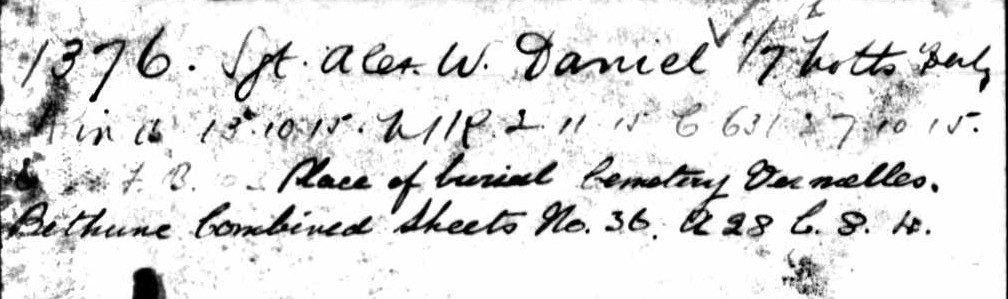 1376. Sgt. Alex. W. Daniel 1/7 Notts Derby
in A 13.10.15. W11R. 2 11 15 C 631 27 10 15.
F. B. Place of burial Cemetery Vermelles.
Bethune Combined Sheets No. 36. A 28 C. 8. 4.